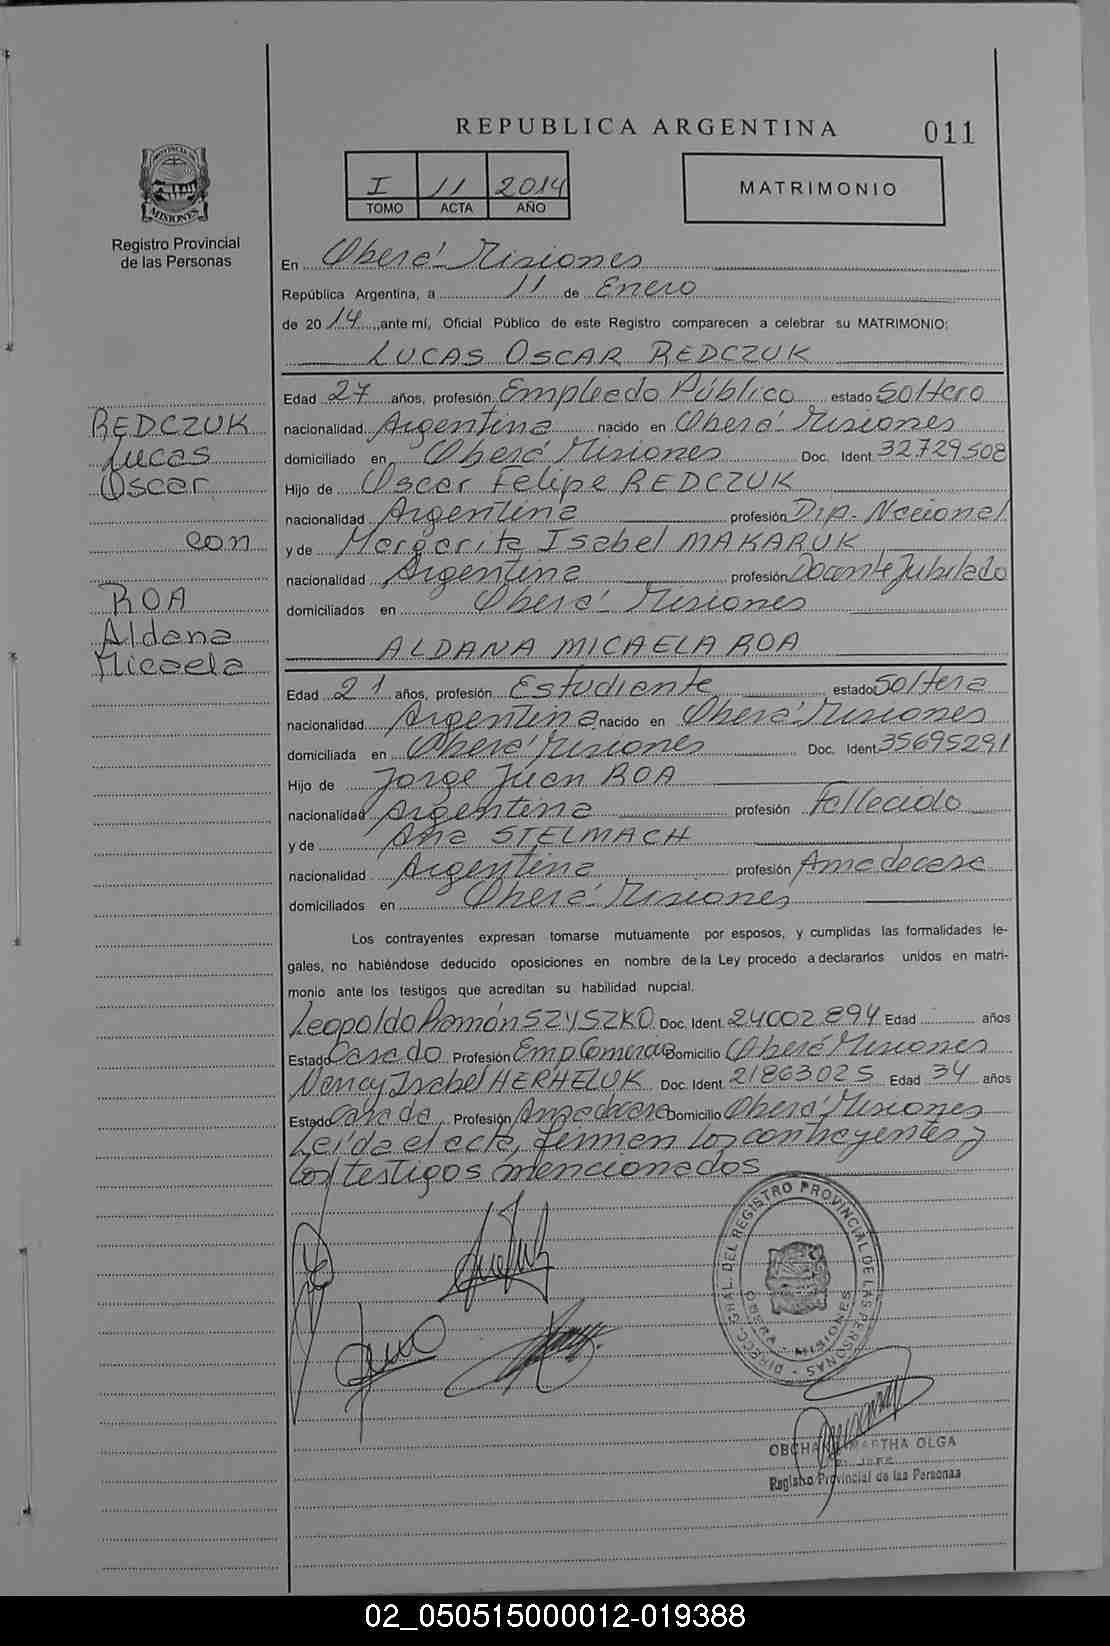 REPUBLICA ARGENTINA
011
PROVINCIA DE
MISIONES
Registro Provincial
de las Personas
I 11 2014
TOMO ACTA AÑO
MATRIMONIO
En Oberá Misiones
República Argentina, a 11 de Enero
de 2014, ante mí, Oficial Público de este Registro comparecen a celebrar su MATRIMONIO:
LUCAS OSCAR REDCZUK
Edad 27 años, profesión Empleado Público estado Soltero
nacionalidad Argentina nacido en Oberá Misiones
domiciliado en Oberá Misiones Doc. Ident. 32.729.508
Hijo de Oscar Felipe REDCZUK
nacionalidad Argentina profesión Dip. Nacional
y de Margarita Isabel MAKARUK
nacionalidad Argentina profesión Docente Jubilado
domiciliados en Oberá Misiones
ALDANA MICAELA ROA
Edad 21 años, profesión Estudiante estado Soltera
nacionalidad Argentina nacido en Oberá Misiones
domiciliada en Oberá Misiones Doc. Ident. 35695291
Hijo de Jorge Juan ROA
nacionalidad Argentina profesión Fallecido
y de Ana STELMACH
nacionalidad Argentina profesión Ama de casa
domiciliados en Oberá Misiones
REDCZUK
Lucas
Oscar
con
ROA
Aldana
Micaela
Los contrayentes expresan tomarse mutuamente por esposos, y cumplidas las formalidades le-
gales, no habiéndose deducido oposiciones en nombre de la Ley procedo a declararlos unidos en matri-
monio ante los testigos que acreditan su habilidad nupcial.
Leopoldo Ramón SZYSZKO Doc. Ident. 24002.894 Edad años
Estado Casado Profesión Emp Comercio Domicilio Oberá Misiones
Nancy Isabel HERHELUK Doc. Ident. 21863025 Edad 34 años
Estado Casada Profesión Ama de casa Domicilio Oberá Misiones
Leída el acta, firman los contrayentes y
los testigos mencionados
DIRECC. GRAL. DEL REGISTRO PROVINCIAL DE LAS PERSONAS
OBERA - MISIONES
MARTHA OLGA
Registro Provincial de las Personas
02_050515000012-019388